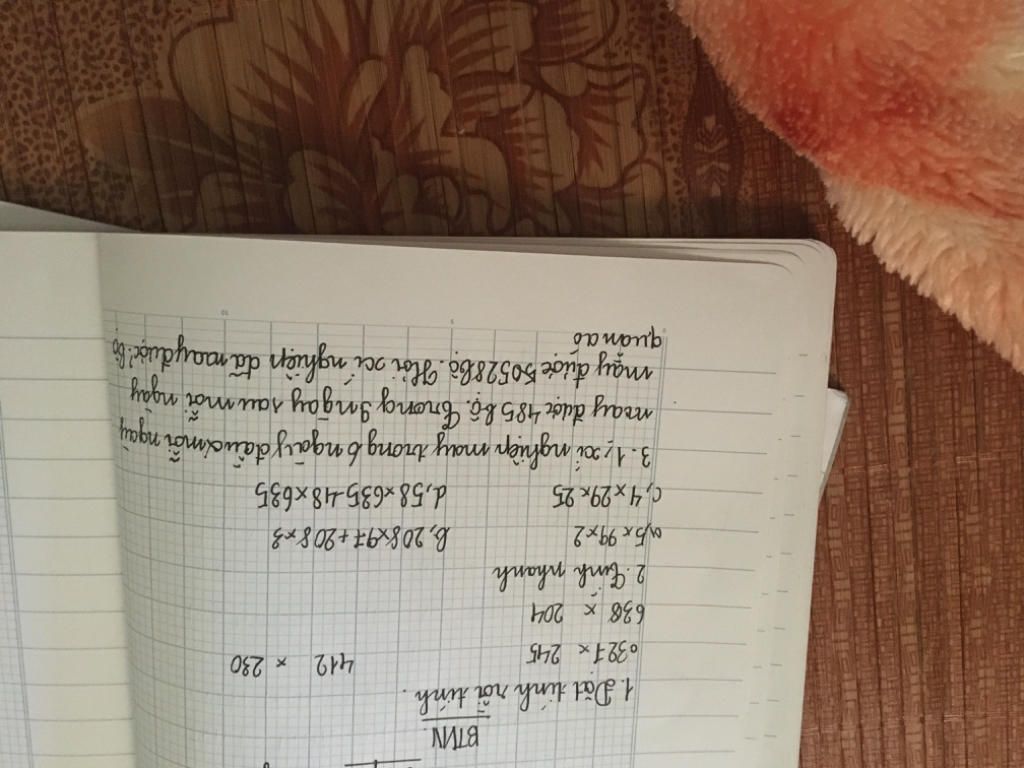 BTVN
1. Đặt tính rồi tính.
a, 327 x 245 412 x 230
638 x 204
2. Tính nhanh
a, 5 x 99 x 2 b, 208 x 97 + 208 x 3
c, 4 x 29 x 25 d, 58 x 635 - 48 x 635
3. 1, xí nghiệp may trong 6 ngày đầu mỗi ngày
may được 485 bộ. Trong 9 ngày sau mỗi ngày
may được 50528 bộ. Hỏi xí nghiệp đã may được ? bộ
quần áo